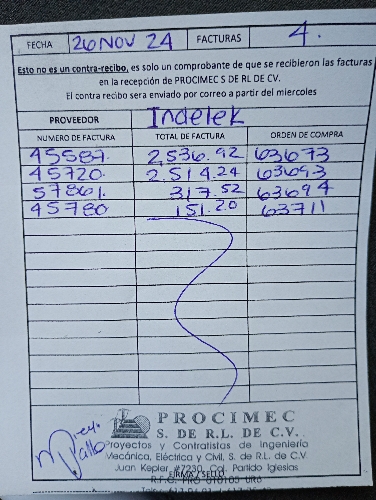 FECHA 26 NOV 24 FACTURAS 4.
Esto no es un contra-recibo, es solo un comprobante de que se recibieron las facturas
en la recepción de PROCIMEC S DE RL DE CV.
El contra recibo sera enviado por correo a partir del miercoles
PROVEEDOR Indelek
NUMERO DE FACTURA TOTAL DE FACTURA ORDEN DE COMPRA
45587. 2,536.92 63673
45720. 2,514.24 63693
57861. 317.52 63694
45780 151.20 63711
PROCIMEC
S. DE R.L. DE C.V.
Proyectos y Contratistas de Ingeniería
Mecánica, Eléctrica y Civil, S. de R.L. de C.V
Juan Kepler #7230, Col. Partido Iglesias
FIRMA/SELLO